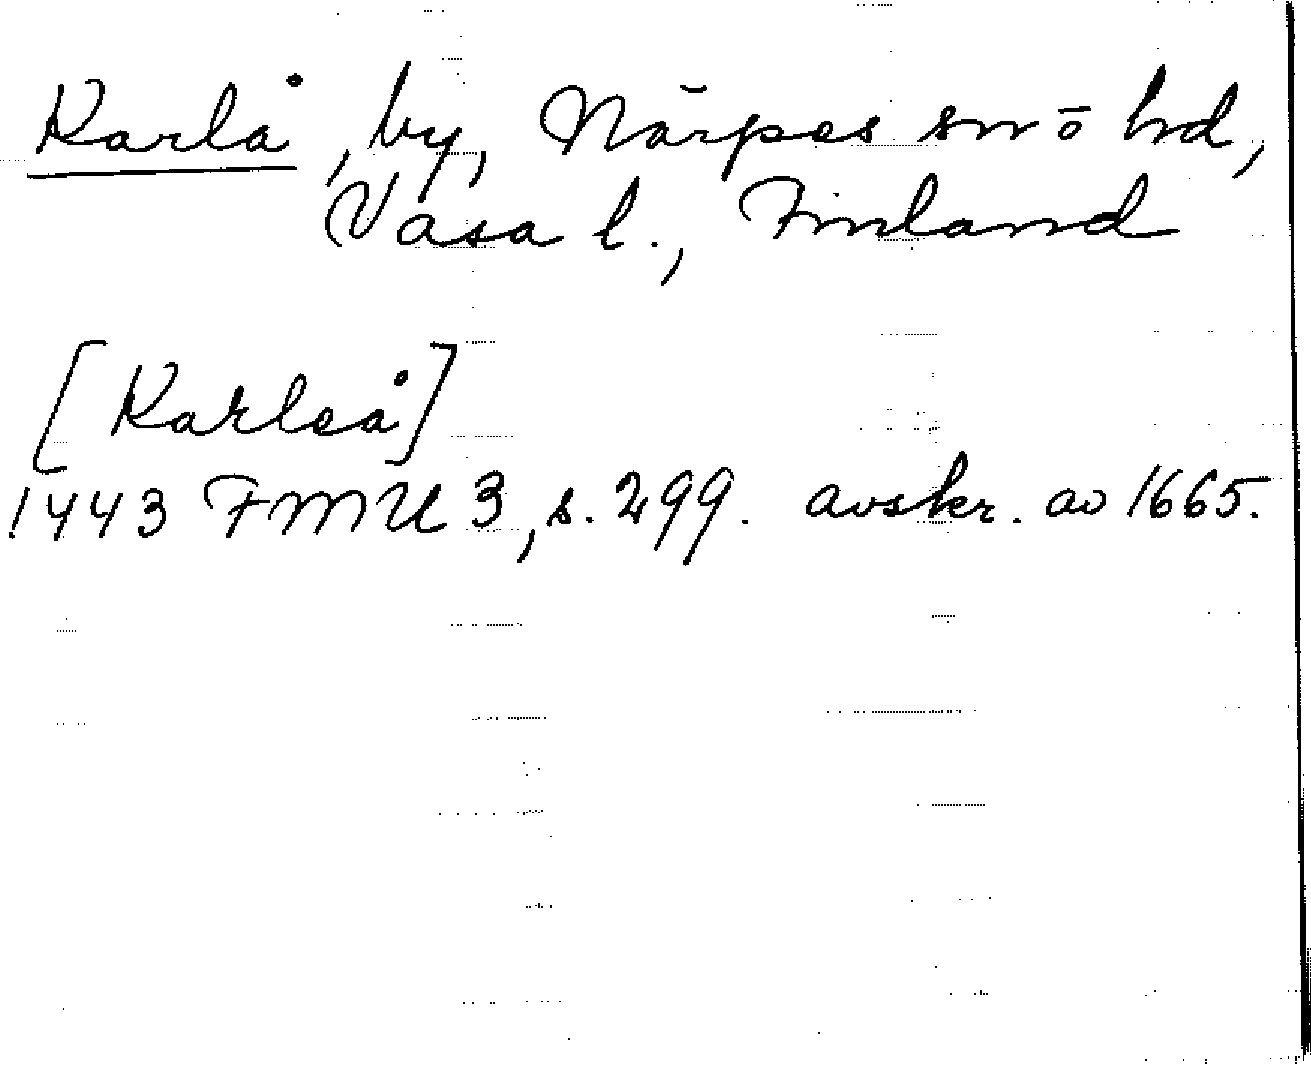 Karlå, by, Närpes sn o hd,
Vasa l., Finland
[Karleå]
1443 FMU 3, s. 299. avskr. av 1665.